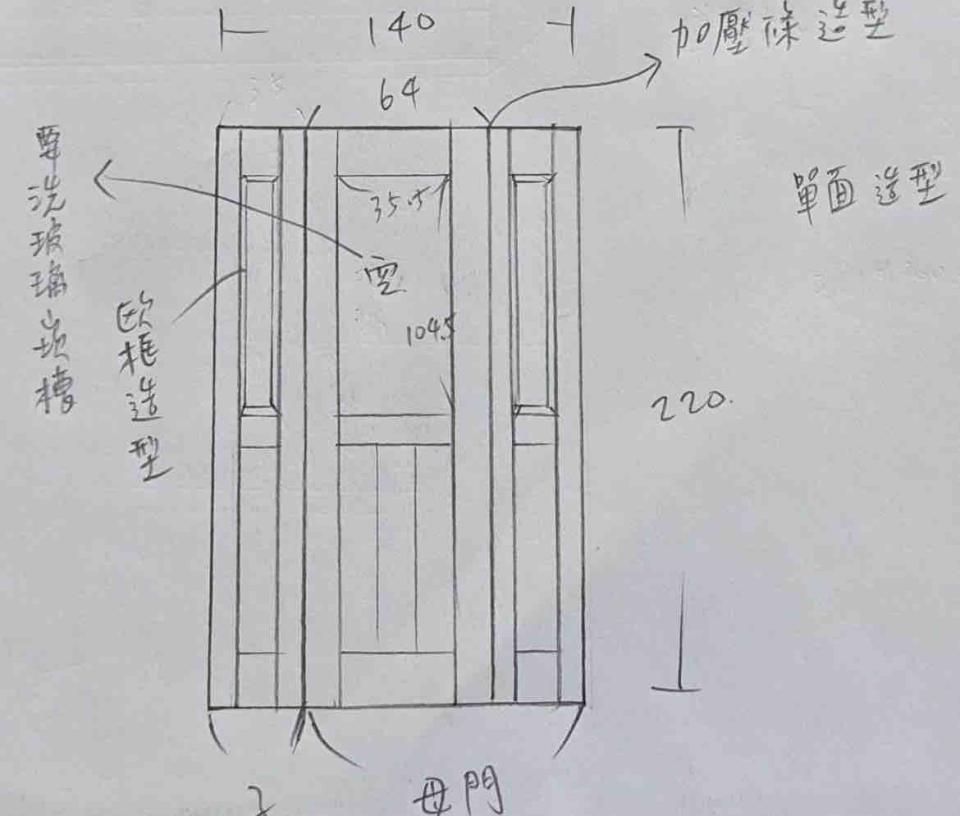 140
加壓條造型
64
單面造型
35.5
要洗玻璃崁槽
空
歐框造型
104.5
220.
子
母門